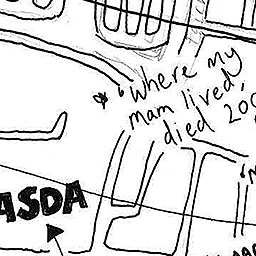 where my
mam lived,
died
ASDA